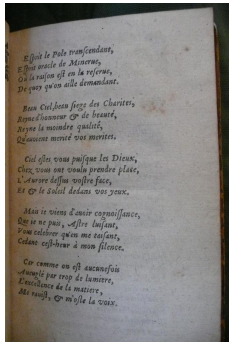 Esprit le Pole transcendant,
Esprit oracle de Minerue,
Où la raison est en la reserue,
De quoy qu'on aille demandant.
Beau Ciel, beau siege des Charites,
Reyne d'honneur & de beauté,
Reyne la moindre qualité,
Qu'auoient merité vos merites.
Ciel estes vous puisque les Dieux,
Chez vous ont voulu prendre place,
L'Aurore dessus vostre face,
Et le Soleil dedans vos yeux.
Mais ie viens d'auoir cognoissance,
Que ie ne puis, Astre luisant,
Vous celebrer qu'en me taisant,
Cedant cest-heur à mon silence.
Car comme on est aucunefois
Aueuglé par trop de lumiere,
L'excellence de la matiere,
Me rauist, & m'oste la voix.